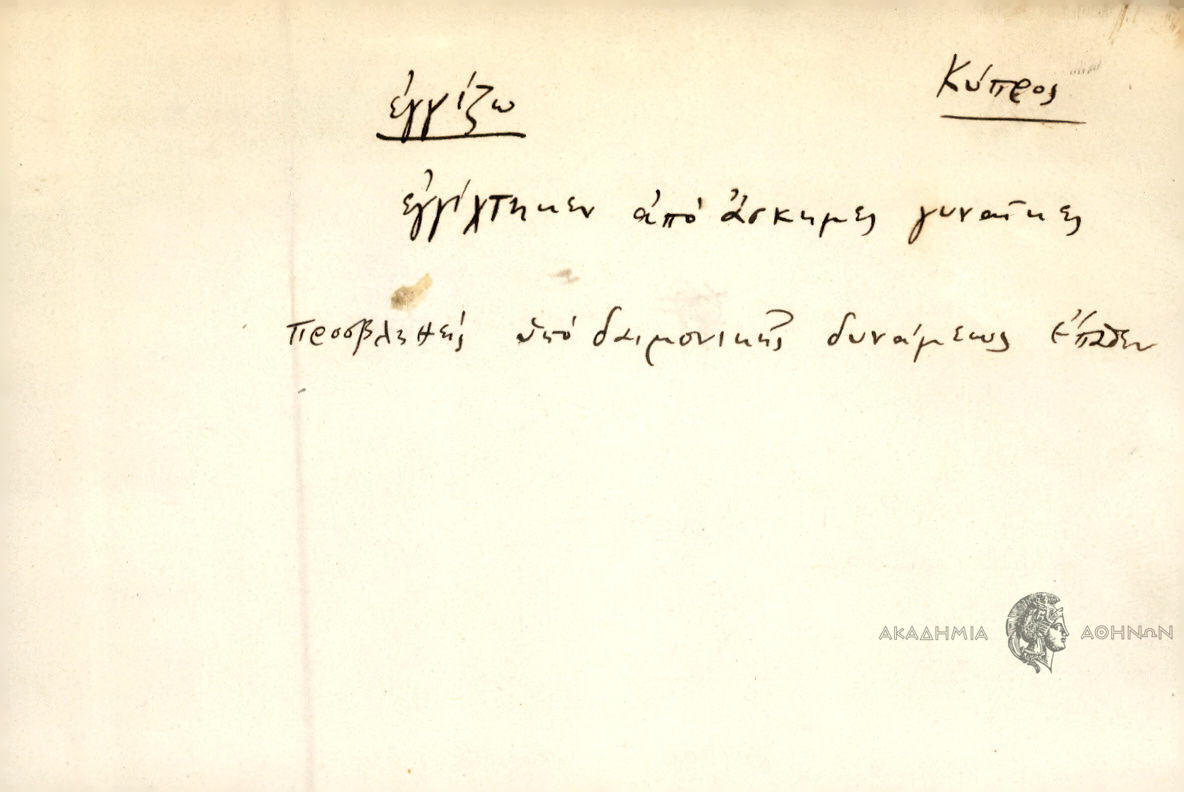 ἐγγίζω Κύπρος
ἐγγίχτηκεν ἀπό ἄσκημες γυναῖκες
προσβληθείς ὑπό δαιμονικῆς δυνάμεως ἔπαθεν
ΑΚΑΔΗΜΙΑ ΑΘΗΝΩΝ